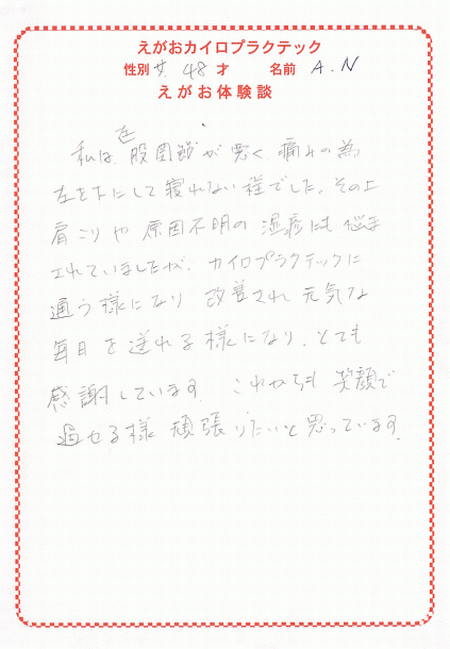 えがおカイロプラクテック
性別 女 48 才 名前 A.N
えがお体験談
私は左股関節が悪く痛みの為
左を下にして寝れない程でした。その上
肩こりや原因不明の湿疹にも悩ま
されていましたが、カイロプラクテックに
通う様になり改善され元気な
毎日を送れる様になり、とても
感謝しています。これからも笑顔で
過せる様頑張りたいと思っています。